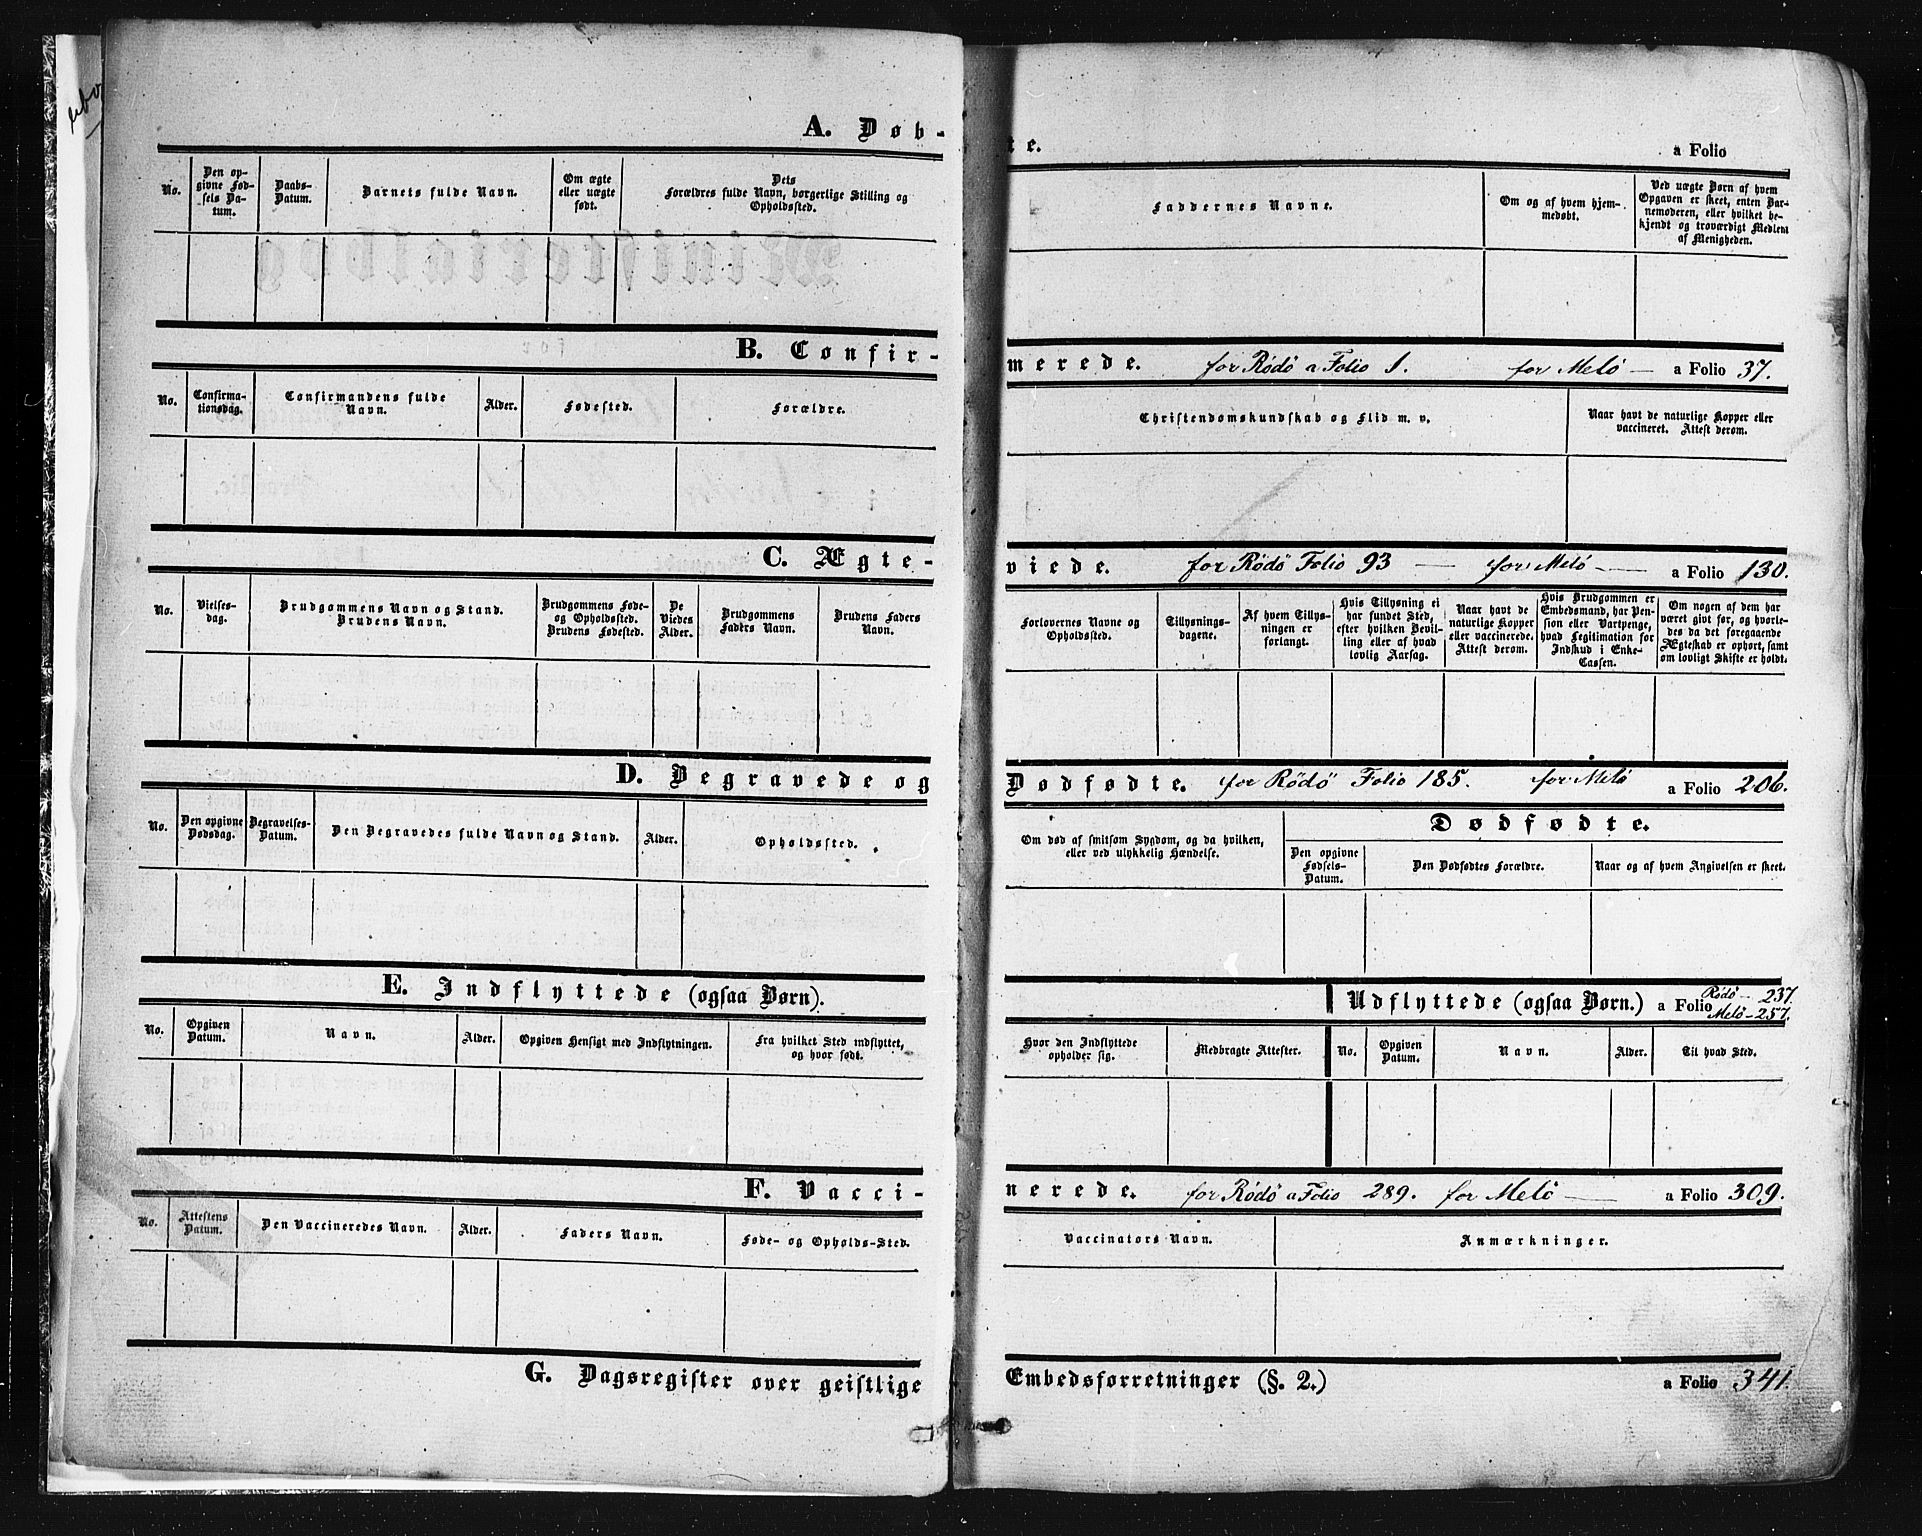 A. Døbte. a Folio
No.
Den op-
givne Fød-
sels Da-
tum.
Daabs-
Datum.
Barnets fulde Navn.
Om ægte
eller uægte
født.
Dets
Forældres fulde Navn, borgerlige Stilling og
Opholdssted.
Faddernes Navne.
Om og af hvem hjem-
medøbt.
Ved uægte Børn af hvem
Opgaven er skeet, enten Bar-
nemoderen, eller hvilket be-
kjendt og troværdigt Medlem
af Menigheden.
B. Confir-merede. for Rödö a Folio 1. for Melö — a Folio 37.
No.
Confirma-
tionsdag.
Confirmandens fulde
Navn.
Alder.
Fødested.
Forældre.
Christendomskundskab og Flid m. v.
Naar havt de naturlige Kopper eller
vaccineret. Attest derom.
C. Ægte-viede. for Rödö Folio 93 — for Melö — a Folio 130.
No.
Vielses-
dag.
Brudgommens Navn og Stand.
Brudens Navn.
Brudgommens Føde-
og Opholdssted.
Brudens Fødested.
De
Viedes
Alder.
Brudgommens
Faders Navn.
Brudens Faders
Navn.
Forlovernes Navne og
Opholdssted.
Tillysnings-
dagene.
Af hvem Tillys-
ningen er
forlangt.
Hvis Tillysning ei
har fundet Sted,
efter hvilken Bevil-
ling eller af hvad
lovlig Aarsag.
Naar havt de
naturlige Kopper
eller vaccinerede.
Attest derom.
Hvis Brudgommen er
Embedsmand, har Pen-
sion eller Vartpenge,
hvad Legitimation for
Indskud i Enke-
Cassen.
Om nogen af dem har
været gift før, og hvorle-
des da det foregaaende
Ægteskab er ophørt, samt
om lovligt Skifte er holdt.
D. Begravede og Dødfødte. for Rödö Folio 185. for Melö a Folio 206.
No.
Den opgivne
Dødsdag.
Begravelses-
Datum.
Den Begravedes fulde Navn og Stand.
Alder.
Opholdssted.
Om død af smitsom Sygdom, og da hvilken,
eller ved ulykkelig Hændelse.
Dødfødte.
Den opgivne
Fødsels-
Datum.
Den Dødfødtes Forældre.
Naar og af hvem Angivelsen er skeet.
E. Indflyttede (ogsaa Børn).
Udflyttede (ogsaa Børn.) a Folio Rödö — 237.
Melö — 257.
No.
Opgiven
Datum.
Navn.
Alder.
Opgiven Hensigt med Indflytningen.
Fra hvilket Sted indflyttet,
og hvor født.
Hvor den Indflyttede
opholder sig.
Medbragte Attester.
No.
Opgiven
Datum.
Navn.
Alder.
Til hvad Sted.
F. Vacci-nerede. for Rödö a Folio 289. for Melö — a Folio 309.
No.
Attestens
Datum.
Den Vaccineredes Navn.
Alder.
Faders Navn.
Føde- og Opholds-Sted.
Vaccinators Navn.
Anmærkninger.
G. Dagsregister over geistlige Embedsforretninger (§. 2.) a Folio 341.